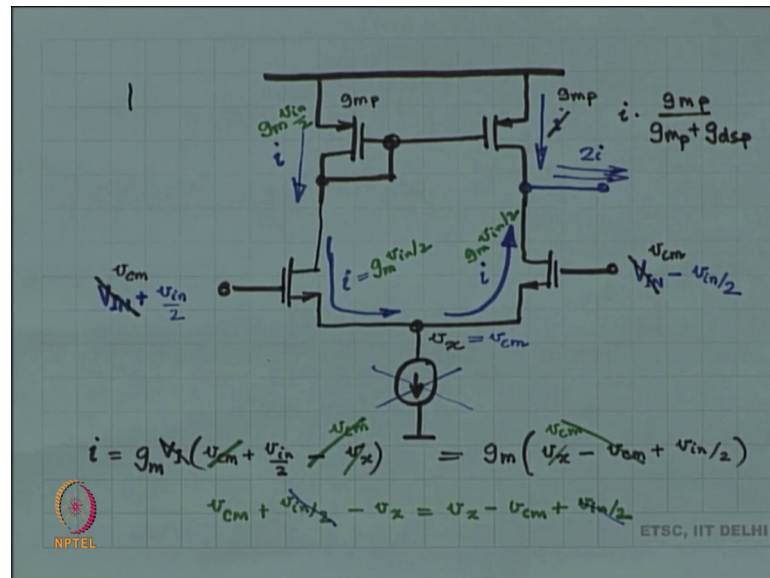 1
gmp
gmp
i · gmp / (gmp + gdsp)
gm vin/2
i
i
2i
i = gm vin/2
gm vin/2
i
vcm
VIN + vin/2
vcm
VIN - vin/2
vx = vcm
vcm
vcm
i = gm (vcm + vin/2 - vx) = gm (vx - vcm + vin/2)
vcm + vin/2 - vx = vx - vcm + vin/2
NPTEL
ETSC, IIT DELHI